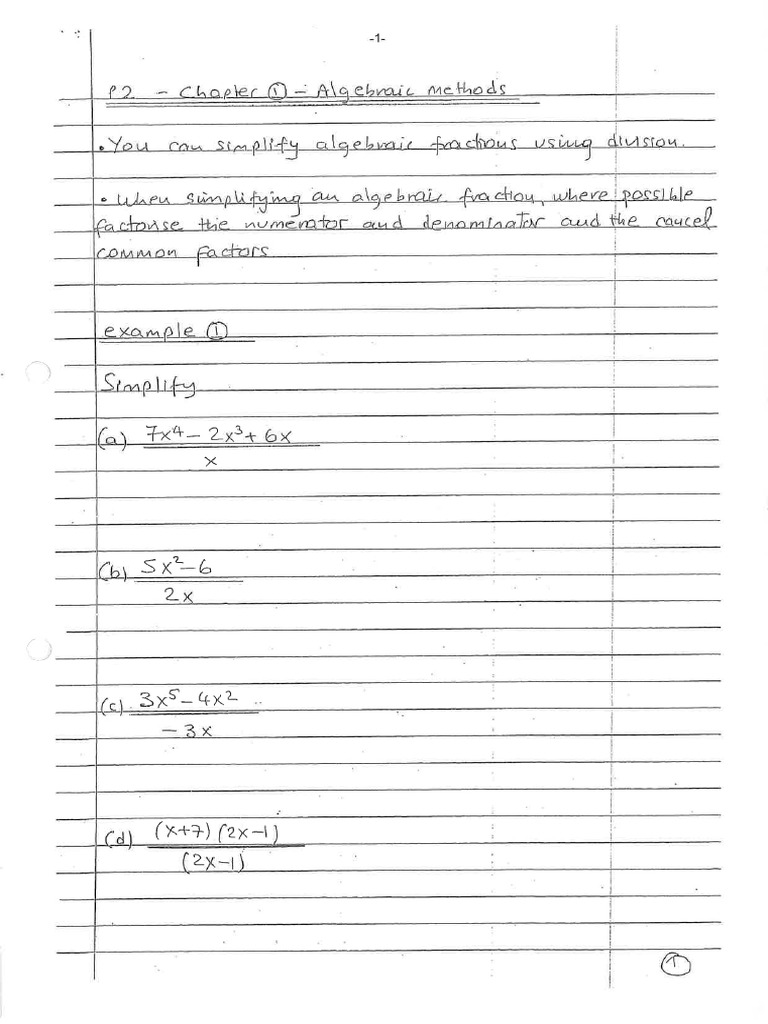 -1-
P2 - Chapter ① - Algebraic Methods
• You can simplify algebraic fractions using division.
• When simplifying an algebraic fraction, where possible
factorise the numerator and denominator and the cancel
common factors
example ①
Simplify
(a) 7x⁴ - 2x³ + 6x
x
(b) 5x² - 6
2x
(c) 3x⁵ - 4x²
- 3x
(d) (x+7)(2x-1)
(2x-1)
①